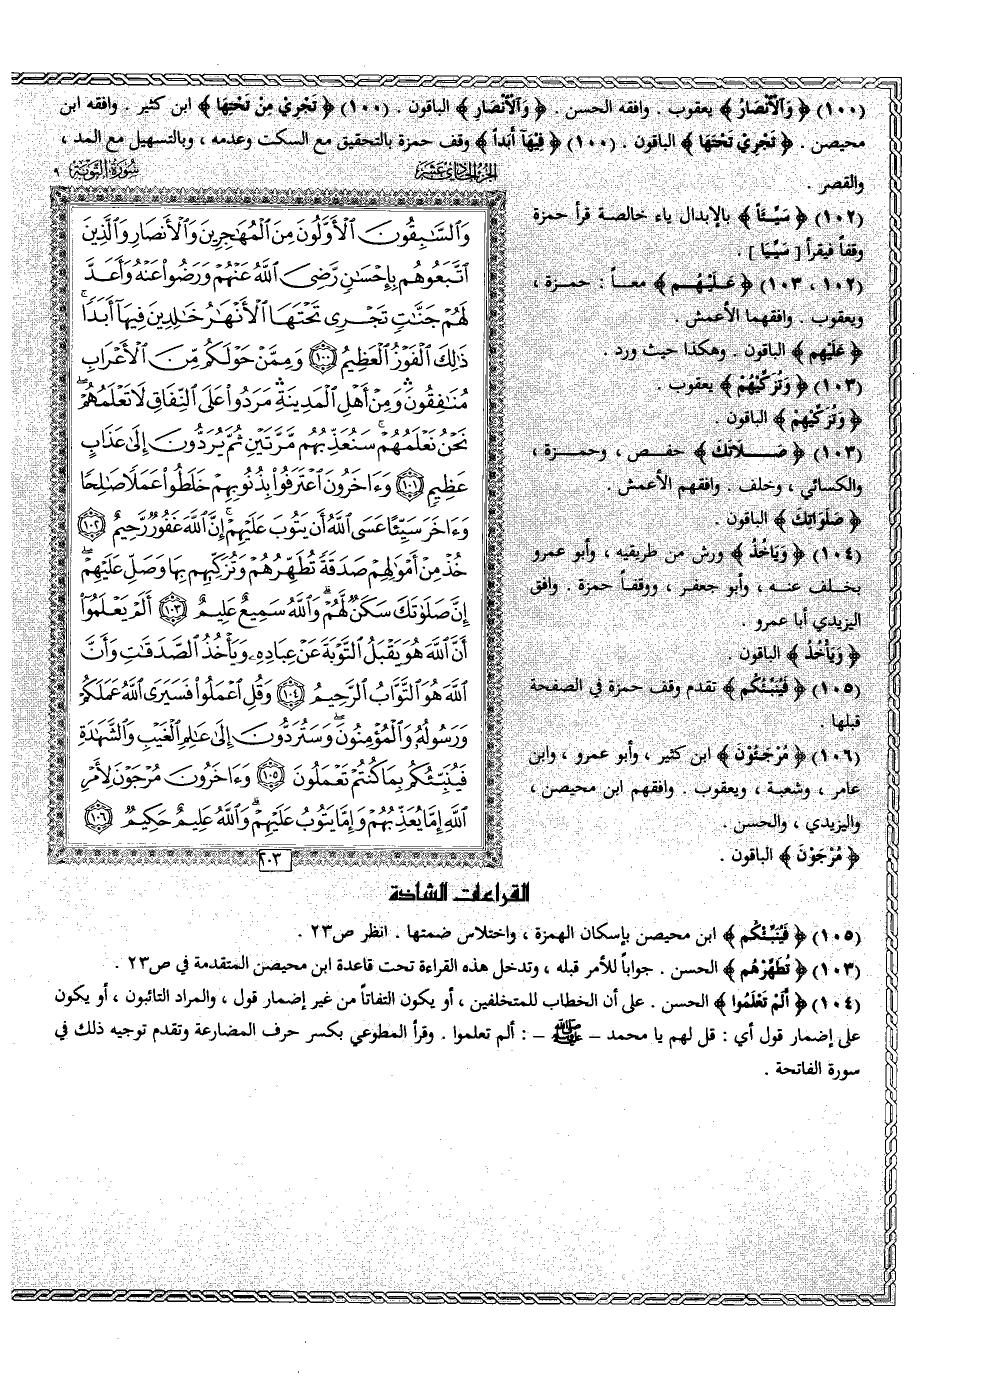 (١٠٠) ﴿ وَالْأَنْصَارُ ﴾ يعقوب . وافقه الحسن . ﴿ وَالْأَنْصَارِ ﴾ الباقون . (١٠٠) ﴿ تَجْرِيْ مِنْ تَحْتِهَا ﴾ ابن كثير . وافقه ابن
محيصن . ﴿ تَجْرِيْ تَحْتَهَا ﴾ الباقون . (١٠٠) ﴿ فِيْهَآ أَبَداً ﴾ وقف حمزة بالتحقيق مع السكت وعدمه ، وبالتسهيل مع المد ،
والقصر .
(١٠٢) ﴿ سَيِّئاً ﴾ بالإبدال ياء خالصة قرأ حمزة
وقفاً فيقرأ [ سَيِّيَا ] .
(١٠٢ ، ١٠٣) ﴿ عَلَيْهُم ﴾ معاً : حمزة ،
ويعقوب . وافقهما الأعمش .
﴿ عَلَيْهِم ﴾ الباقون . وهكذا حيث ورد .
(١٠٣) ﴿ وَتُزَكِّيْهُمْ ﴾ يعقوب .
﴿ وَتُزَكِّيْهِمْ ﴾ الباقون .
(١٠٣) ﴿ صَلَاتَكَ ﴾ حفص ، وحمزة ،
والكسائي ، وخلف . وافقهم الأعمش .
﴿ صَلَوَاتِكَ ﴾ الباقون .
(١٠٤) ﴿ وَيَاخُذُ ﴾ ورش من طريقيه ، وأبو عمرو
بخلف عنه ، وأبو جعفر ، ووقفاً حمزة . وافق
اليزيدي أبا عمرو .
﴿ وَيَأْخُذُ ﴾ الباقون .
(١٠٥) ﴿ فَيُنَبِّئُكُم ﴾ تقدم وقف حمزة في الصفحة
قبلها .
(١٠٦) ﴿ مُرْجَئُوْنَ ﴾ ابن كثير ، وأبو عمرو ، وابن
عامر ، وشعبة ، ويعقوب . وافقهم ابن محيصن ،
واليزيدي ، والحسن .
﴿ مُرْجَوْنَ ﴾ الباقون .
الجزء الحادي عشر
سورة التوبة ٩
وَالسَّٰبِقُونَ الْأَوَّلُونَ مِنَ الْمُهَٰجِرِينَ وَالْأَنصَارِ وَالَّذِينَ
اتَّبَعُوهُم بِإِحْسَٰنٍ رَّضِىَ اللَّهُ عَنْهُمْ وَرَضُوا۟ عَنْهُ وَأَعَدَّ
لَهُمْ جَنَّٰتٍ تَجْرِى تَحْتَهَا الْأَنْهَٰرُ خَٰلِدِينَ فِيهَآ أَبَدًا ۚ
ذَٰلِكَ الْفَوْزُ الْعَظِيمُ ١٠٠ وَمِمَّنْ حَوْلَكُم مِّنَ الْأَعْرَابِ
مُنَٰفِقُونَ ۖ وَمِنْ أَهْلِ الْمَدِينَةِ ۖ مَرَدُوا۟ عَلَى النِّفَاقِ لَا تَعْلَمُهُمْ ۖ
نَحْنُ نَعْلَمُهُمْ ۚ سَنُعَذِّبُهُم مَّرَّتَيْنِ ثُمَّ يُرَدُّونَ إِلَىٰ عَذَابٍ
عَظِيمٍ ١٠١ وَءَاخَرُونَ اعْتَرَفُوا۟ بِذُنُوبِهِمْ خَلَطُوا۟ عَمَلًا صَٰلِحًا
وَءَاخَرَ سَيِّئًا عَسَى اللَّهُ أَن يَتُوبَ عَلَيْهِمْ ۚ إِنَّ اللَّهَ غَفُورٌ رَّحِيمٌ ١٠٢
خُذْ مِنْ أَمْوَٰلِهِمْ صَدَقَةً تُطَهِّرُهُمْ وَتُزَكِّيهِم بِهَا وَصَلِّ عَلَيْهِمْ ۖ
إِنَّ صَلَوٰتَكَ سَكَنٌ لَّهُمْ ۗ وَاللَّهُ سَمِيعٌ عَلِيمٌ ١٠٣ أَلَمْ يَعْلَمُوٓا۟
أَنَّ اللَّهَ هُوَ يَقْبَلُ التَّوْبَةَ عَنْ عِبَادِهِۦ وَيَأْخُذُ الصَّدَقَٰتِ وَأَنَّ
اللَّهَ هُوَ التَّوَّابُ الرَّحِيمُ ١٠٤ وَقُلِ اعْمَلُوا۟ فَسَيَرَى اللَّهُ عَمَلَكُمْ
وَرَسُولُهُۥ وَالْمُؤْمِنُونَ ۖ وَسَتُرَدُّونَ إِلَىٰ عَٰلِمِ الْغَيْبِ وَالشَّهَٰدَةِ
فَيُنَبِّئُكُم بِمَا كُنتُمْ تَعْمَلُونَ ١٠٥ وَءَاخَرُونَ مُرْجَوْنَ لِأَمْرِ
اللَّهِ إِمَّا يُعَذِّبُهُمْ وَإِمَّا يَتُوبُ عَلَيْهِمْ ۗ وَاللَّهُ عَلِيمٌ حَكِيمٌ ١٠٦
٢٠٣
القراءات الشاذة
(١٠٥) ﴿ فَيُنَبِّئْكُم ﴾ ابن محيصن بإسكان الهمزة ، واختلاس ضمتها . انظر ص٢٣ .
(١٠٣) ﴿ تُطَهِّرْهُم ﴾ الحسن . جواباً للأمر قبله ، وتدخل هذه القراءة تحت قاعدة ابن محيصن المتقدمة في ص٢٣ .
(١٠٤) ﴿ أَلَمْ تَعْلَمُوا ﴾ الحسن . على أن الخطاب للمتخلفين ، أو يكون التفاتاً من غير إضمار قول ، والمراد التائبون ، أو يكون
على إضمار قول أي : قل لهم يا محمد – ﷺ – : ألم تعلموا . وقرأ المطوعي بكسر حرف المضارعة وتقدم توجيه ذلك في
سورة الفاتحة .